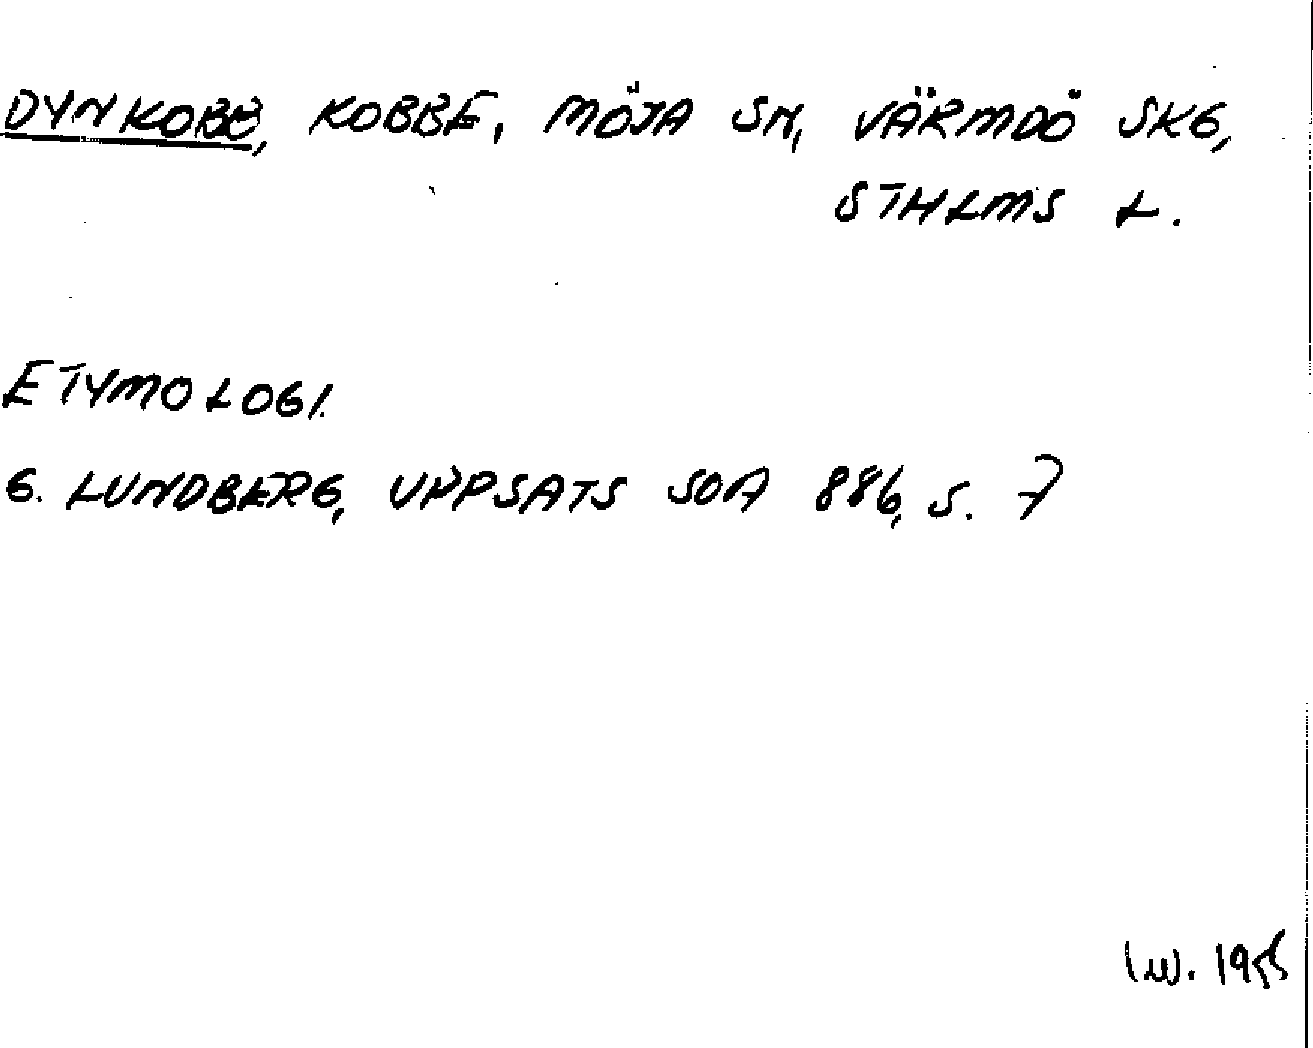 DYNKOBB, KOBBE, MÖJA SN, VÄRMDÖ SKG,
STHLMS L.
ETYMOLOGI.
G. LUNDBERG, UPPSATS SOA 886, S. 7